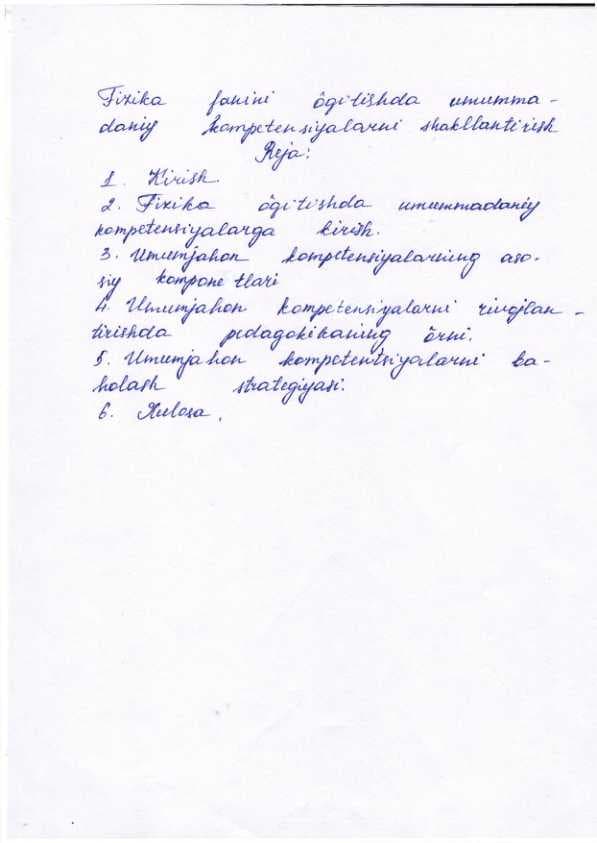 Fizika fanini ôqitishda umumma-
daniy kompetensiyalarni shakllantirish
Reja:
1. Kirish.
2. Fizika ôqitishda umummadaniy
kompetensiyalarga kirish.
3. Umumjahon kompetensiyalarining aso-
siy kompone tlari
4. Umumjahon kompetensiyalarni rivojlan-
tirishda pedagokikaning ôrni.
5. Umumjahon kompetentsiyalarni ba-
holash strategiyasi.
6. Xulosa.